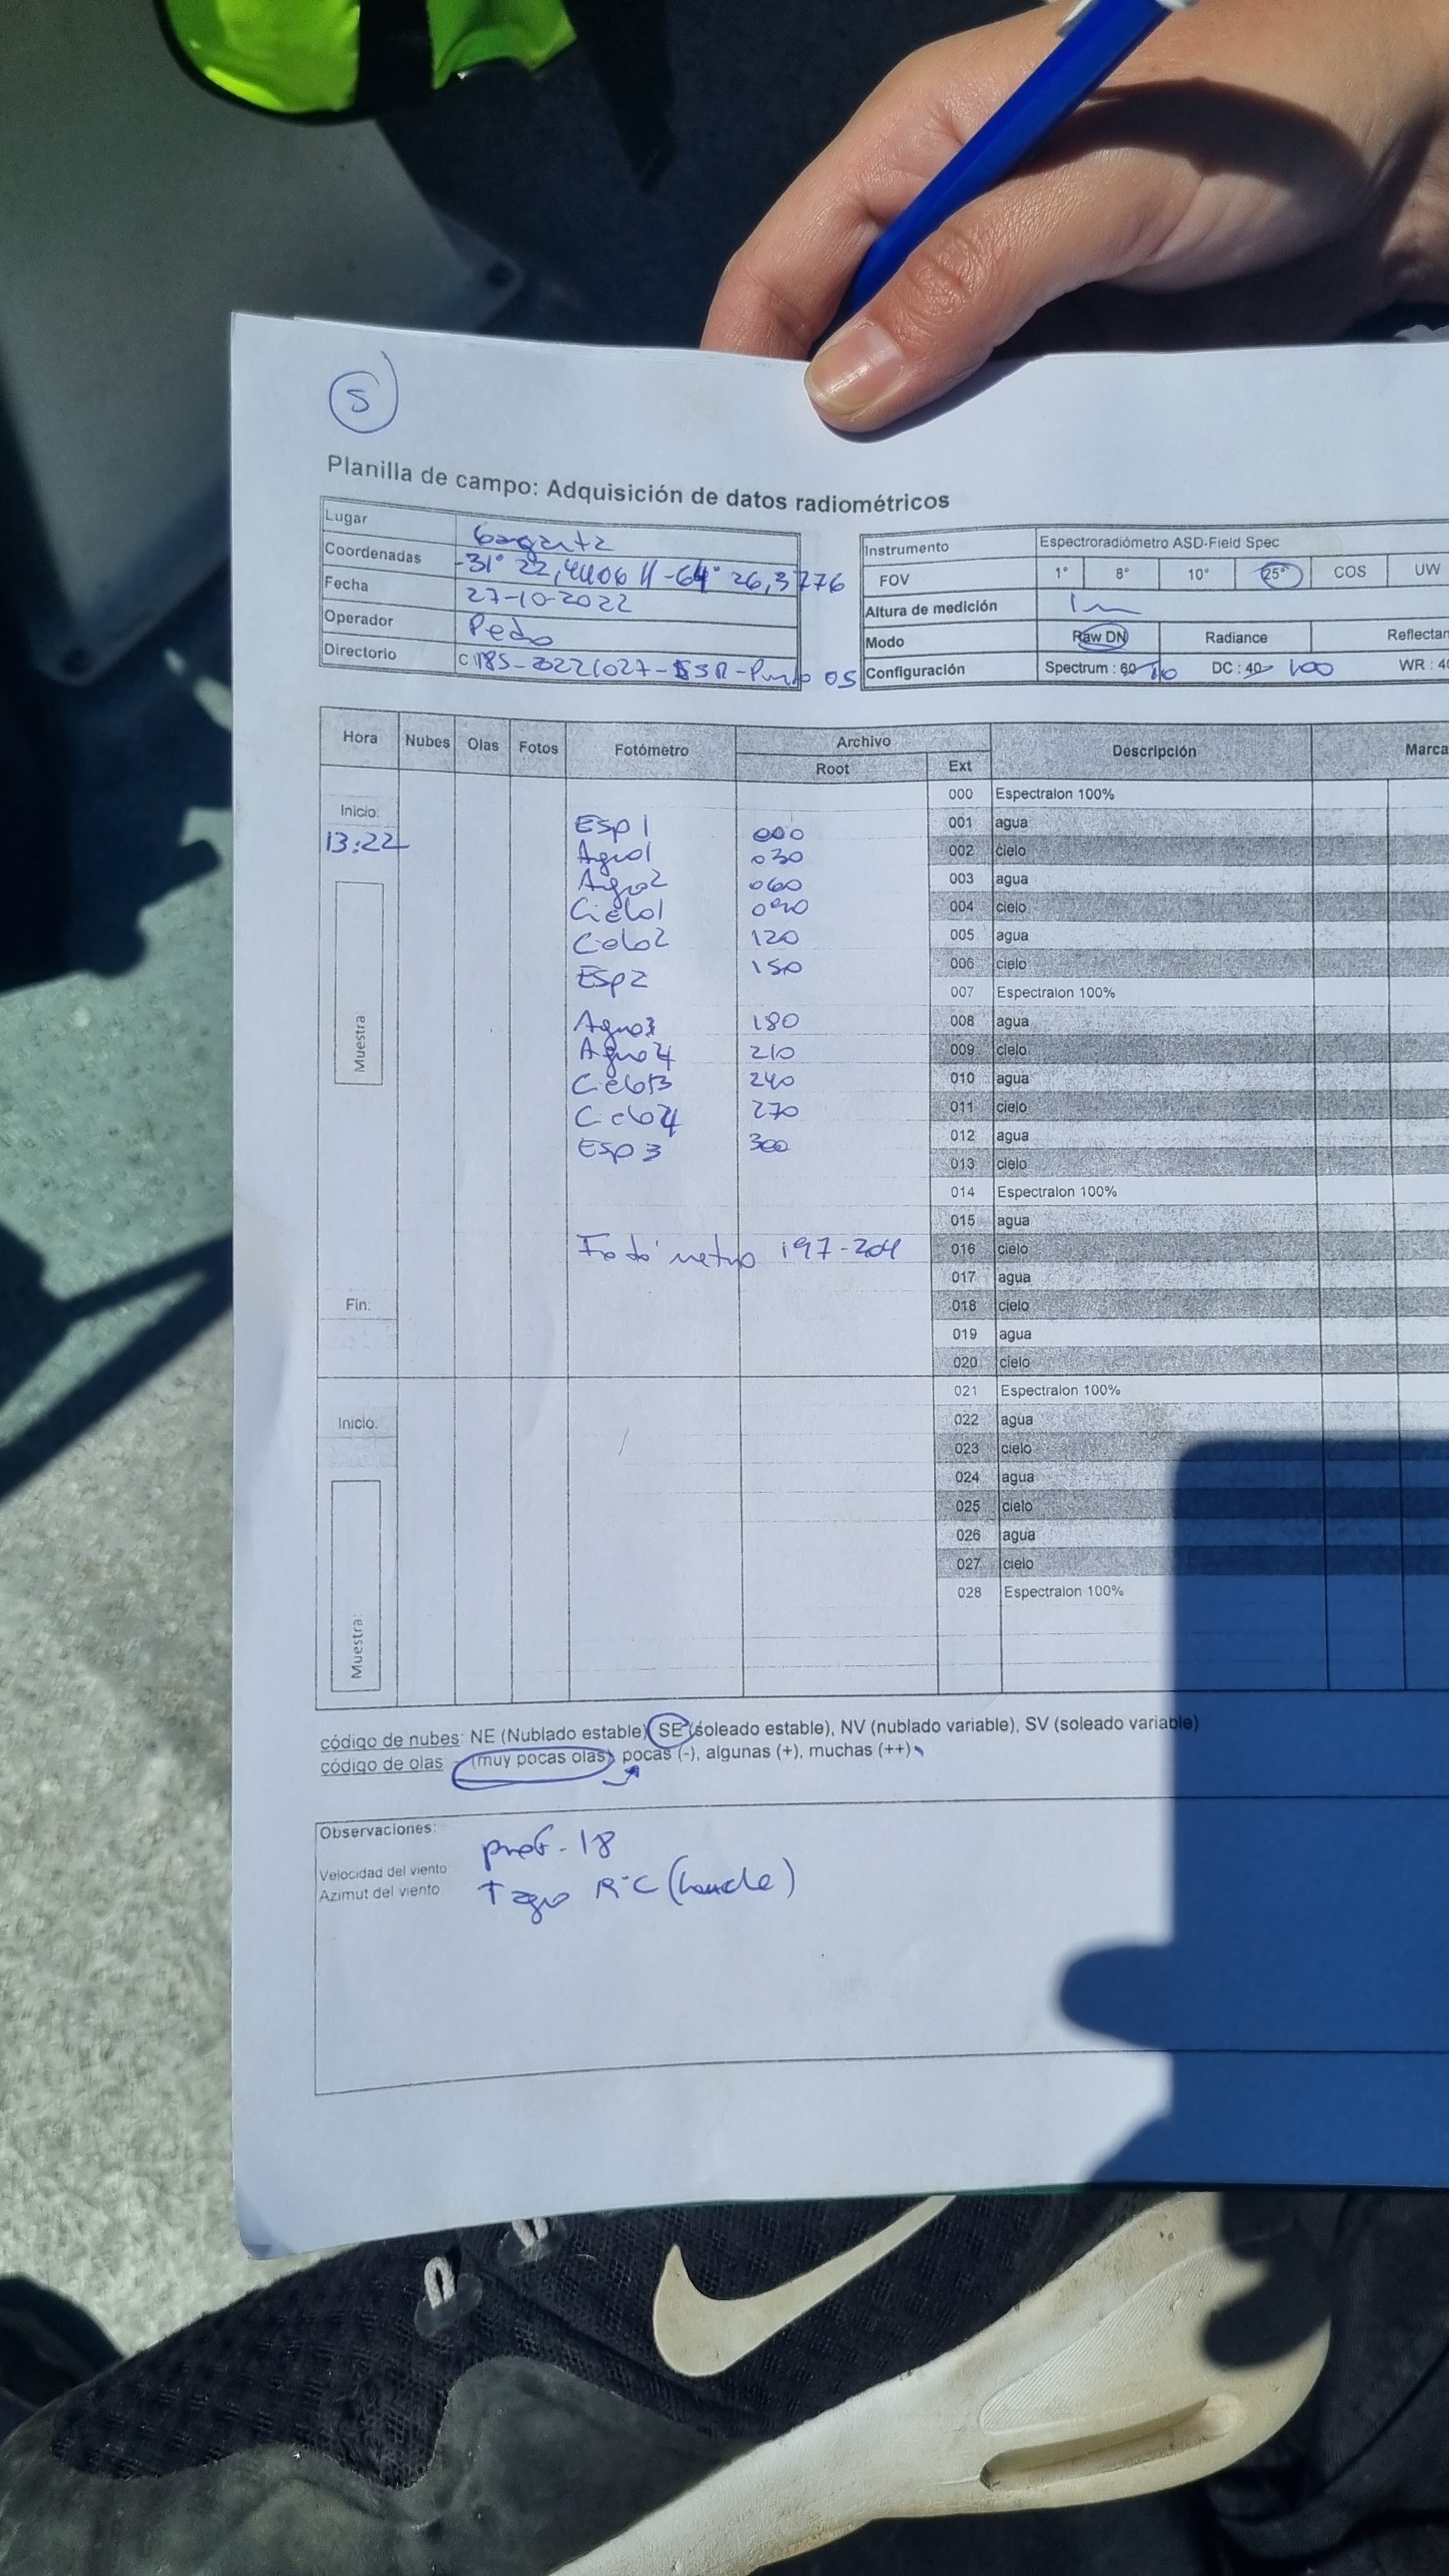 5
Planilla de campo: Adquisición de datos radiométricos
Lugar Garganta
Coordenadas -31° 22,4406 // -64° 26,3776
Fecha 27-10-2022
Operador Pedro
Directorio Punto 05
Instrumento Espectroradiómetro ASD-Field Spec
FOV 1° 8° 10° 25° COS UW
Altura de medición 1m
Modo Raw DN Radiance Reflectan
Configuración Spectrum : 60 10 DC : 40 100 WR : 40
Hora Nubes Olas Fotos Fotómetro Archivo Descripción Marca
Root Ext
000 Espectralon 100%
Inicio:
13:22
Esp 1 000 001 agua
Agua1 030 002 cielo
Agua2 060 003 agua
Cielo1 090 004 cielo
Cielo2 120 005 agua
Esp2 150 006 cielo
007 Espectralon 100%
Muestra
Agua3 180 008 agua
Agua4 210 009 cielo
Cielo3 240 010 agua
Cielo4 270 011 cielo
Esp 3 300 012 agua
013 cielo
014 Espectralon 100%
015 agua
Fotómetro 197-204 016 cielo
017 agua
Fin: 018 cielo
019 agua
020 cielo
021 Espectralon 100%
Inicio: 022 agua
023 cielo
024 agua
025 cielo
026 agua
027 cielo
028 Espectralon 100%
Muestra:
código de nubes: NE (Nublado estable) SE (soleado estable), NV (nublado variable), SV (soleado variable)
código de olas (muy pocas olas) pocas (-), algunas (+), muchas (++)
Observaciones:
prof - 18
Velocidad del viento
Azimut del viento
T agua